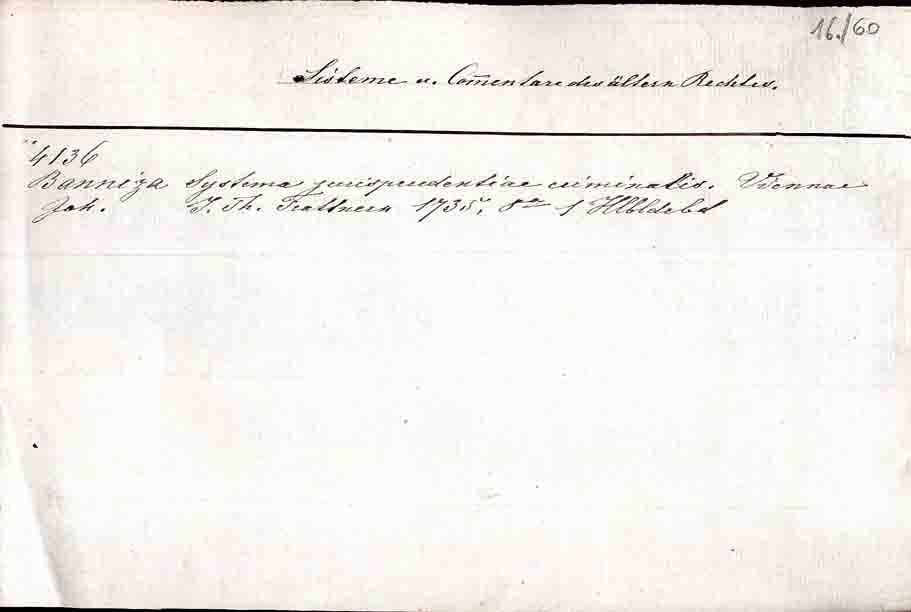 16./60
Sisteme u. Com̄entare des ältern Rechtes.
4136
Banniza Systema jurisprudentiae criminalis. Viennae
Joh. J. Th. Trattnern 1735, 8vo 1 Hlbldrbd